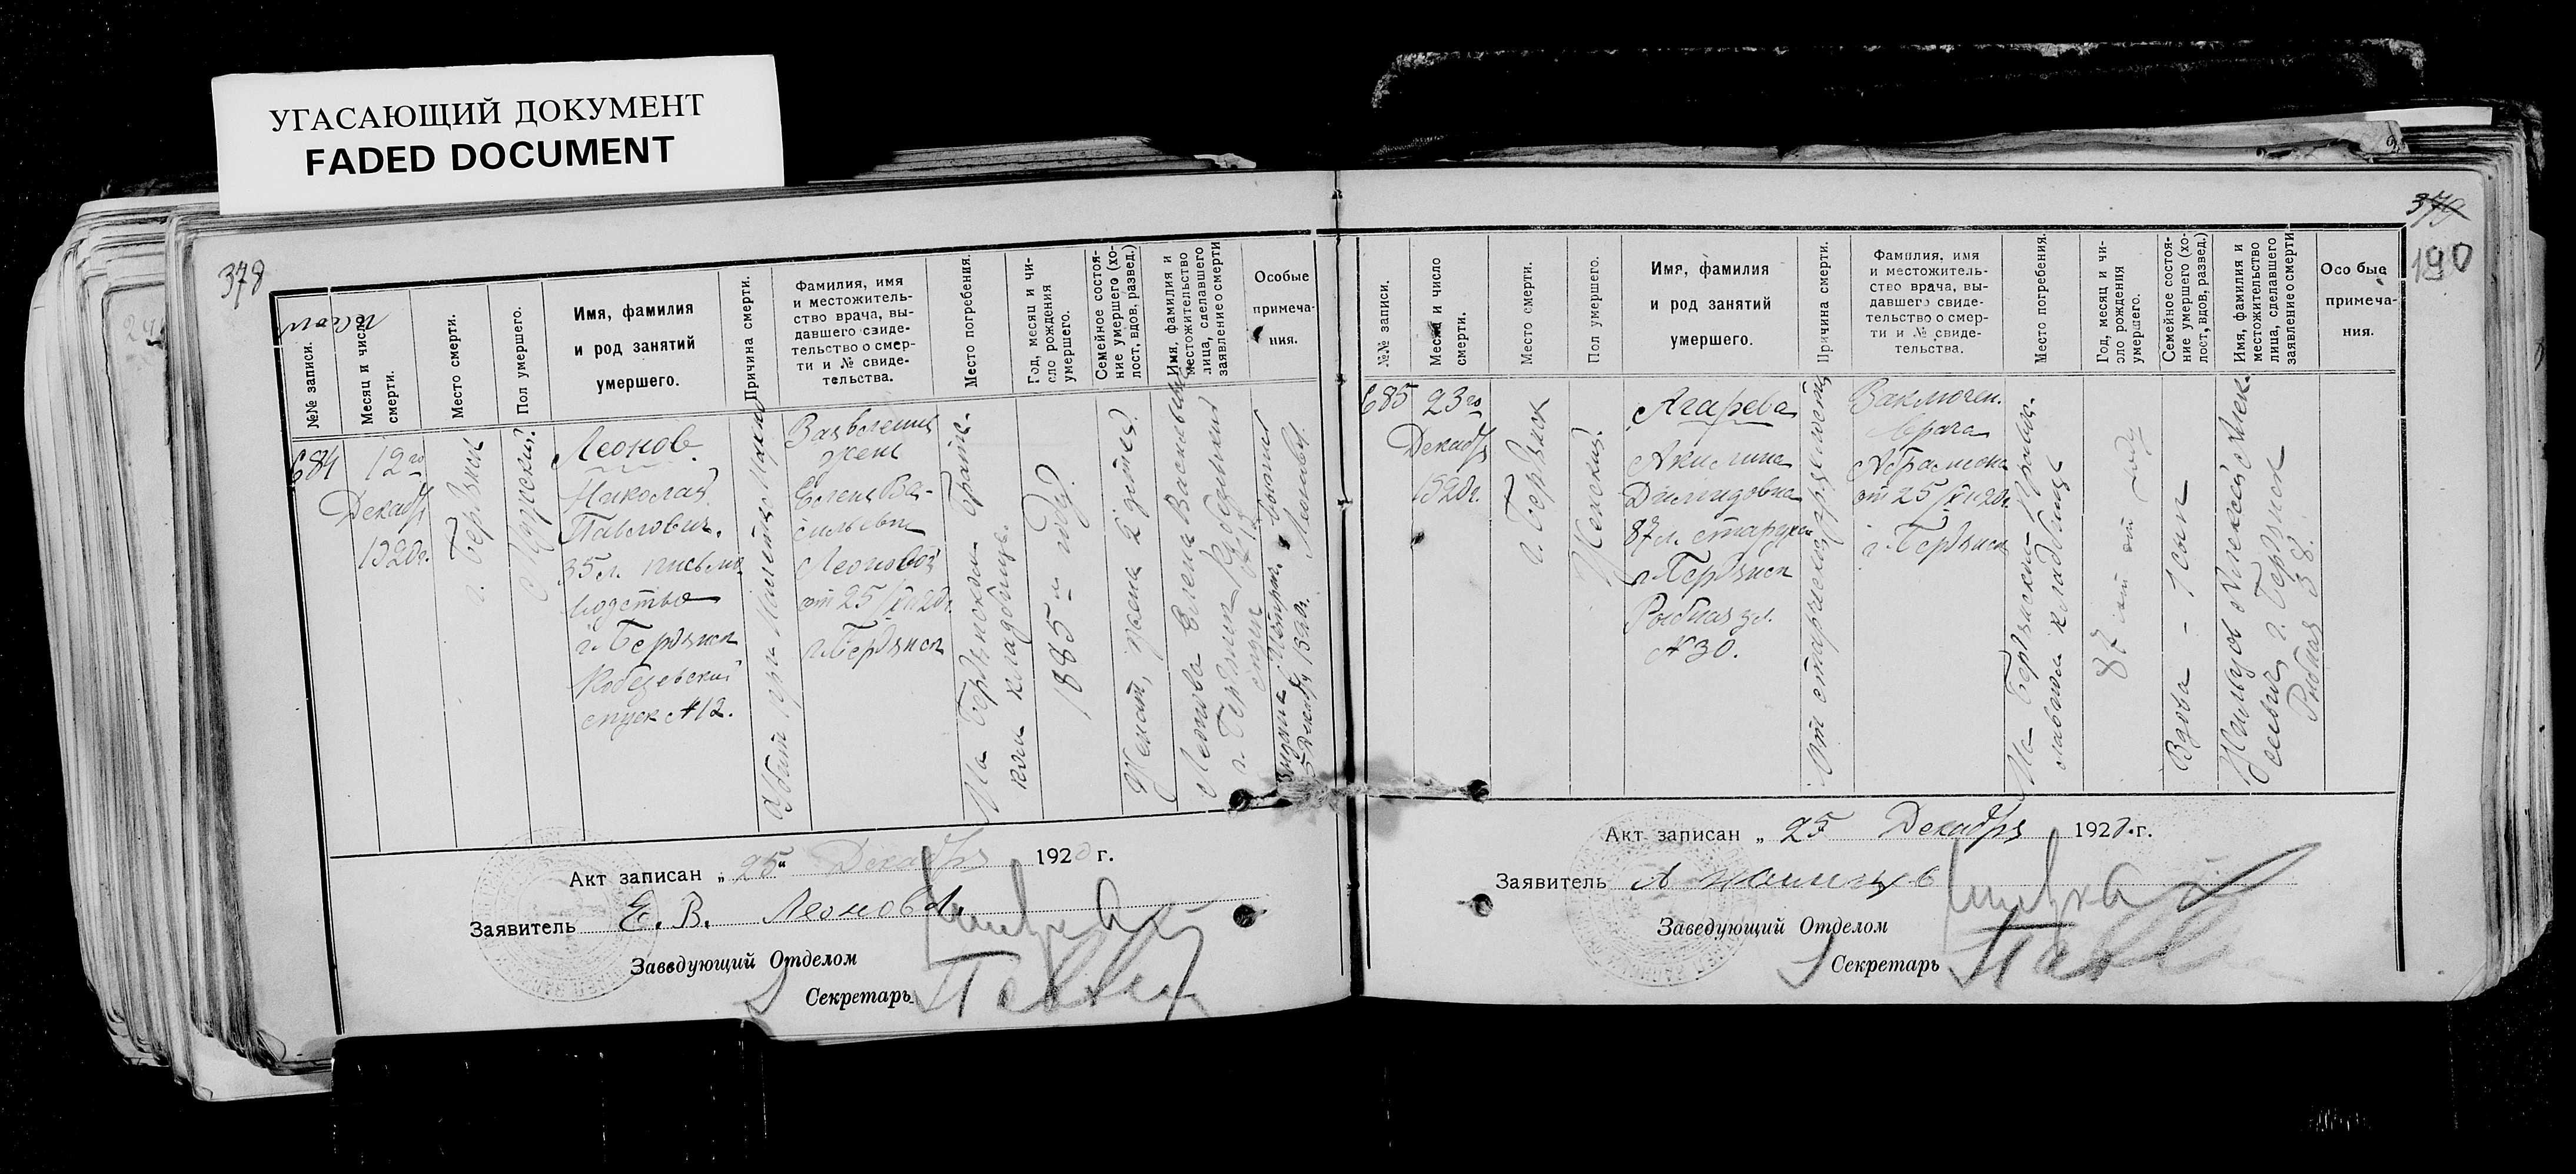 УГАСАЮЩИЙ ДОКУМЕНТ
FADED DOCUMENT
378
№№ записи.
Месяц и число смерти.
Место смерти.
Пол умершего.
Имя, фамилия
и род занятий
умершего.
Причина смерти.
Фамилия, имя
и местожитель-
ство врача, вы-
давшего свиде-
тельство о смер-
ти и № свиде-
тельства.
Место погребения.
Год, месяц и чи-
сло рождения
умершего.
Семейное состоя-
ние умершего (хо-
лост, вдов, развед.)
Имя, фамилия и
местожительство
лица, сделавшего
заявление о смерти
Особые
примеча-
ния.
684
12го
Декабр
1920г.
г. Бердянск
Мужский.
Леонов
Николай
Павлович.
35 л. письмо
водство
г. Бердянск
Кобезевский
спуск №12.
Убит при налете
жены
Елены Ва-
сильевны
Леоновой
от 25/XII 20г.
г. Бердянск
На Бердянском братс-
ком кладбище.
1885 г.
Женат, жена 2 детей.
Леонова Елена Васильевна
г. Бердянск Кобезевский
спуск №12
5 Декабр 1920г.
Акт записан „25“ Декабря 1920 г.
Заявитель Е. В. Леонова.
Заведующий Отделом
Секретарь
379
190
№№ записи.
Месяц и число
смерти.
Место смерти.
Пол умершего.
Имя, фамилия
и род занятий
умершего.
Причина смерти.
Фамилия, имя
и местожитель-
ство врача, вы-
давшего свиде-
тельство о смер-
ти и № свиде-
тельства.
Место погребения.
Год, месяц и чи-
сло рождения
умершего.
Семейное состоя-
ние умершего (хо-
лост, вдов, развед.)
Имя, фамилия и
местожительство
лица, сделавшего
заявление о смерти
Особые
примеча-
ния.
685
23го
Декабр
1920г.
г. Бердянск
Женский.
Агарева
Акилина
87 л. старуха
г. Бердянск
Рыбная ул.
№30.
От старческой дряхлости
Заключен.
врача
от 25/XII 20г.
г. Бердянск
На Бердянском правос-
лавном кладбище
87 лет от роду
Вдова - 1 сын
г. Бердянск
Рыбная 38.
Акт записан „25 Декабря 1920 г.
Заявитель А
Заведующий Отделом
Секретарь